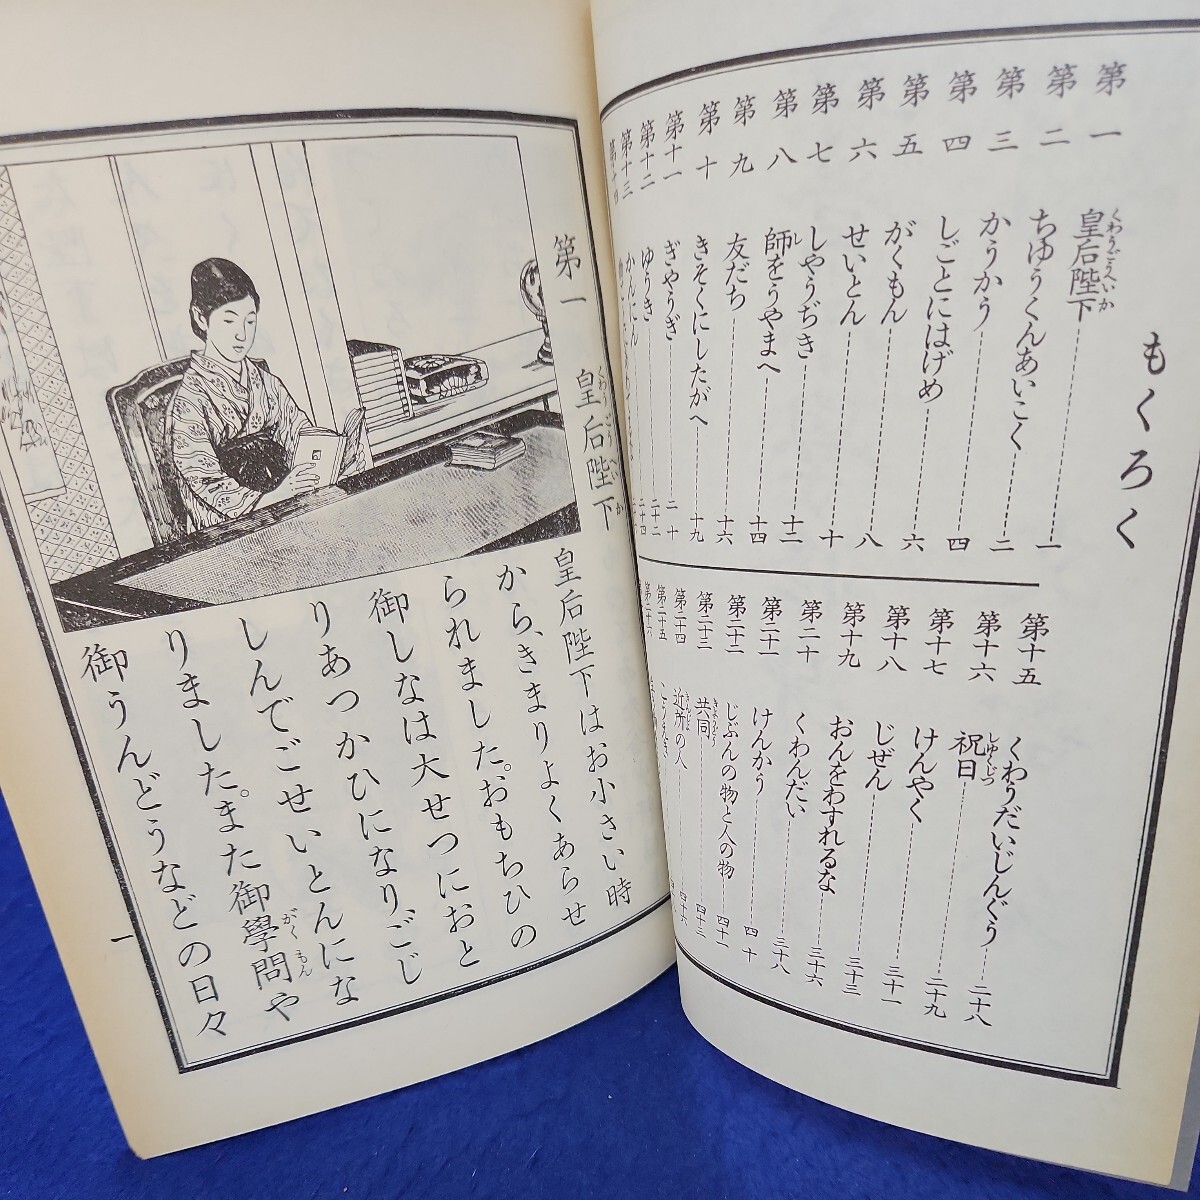 もくろく
第一 皇后陛下 一
くわうごうへいか
第二 ちゆうくんあいこく 二
第三 かうかう 四
第四 しごとにはげめ 六
第五 がくもん 八
第六 せいとん 十
第七 しやうぢき 十二
第八 師をうやまへ 十四
し
第九 友だち 十六
第十 きそくにしたがへ 十九
第十一 ぎやうぎ 二十
第十二 ゆうき 二十二
第十三 かんにん 二十四
第十五 くわうだいじんぐう 二十八
第十六 祝日 二十九
しゆくじつ
第十七 けんやく 三十一
第十八 じぜん 三十三
第十九 おんをわすれるな 三十六
第二十 くわんだい 三十八
第二十一 けんかう 四十
第二十二 じぶんの物と人の物 四十一
第二十三 共同 四十三
きようどう
第二十四 近所の人 四十六
きんじよ
第二十五
第二十六
第一 皇后陛下
くわうごうへいか
皇后陛下はお小さい時
から、きまりよくあらせ
られました。おもちひの
御しなは大せつにおと
りあつかひになり、ごじ
しんでごせいとんにな
りました。また御學問や
がくもん
御うんどうなどの日々
一